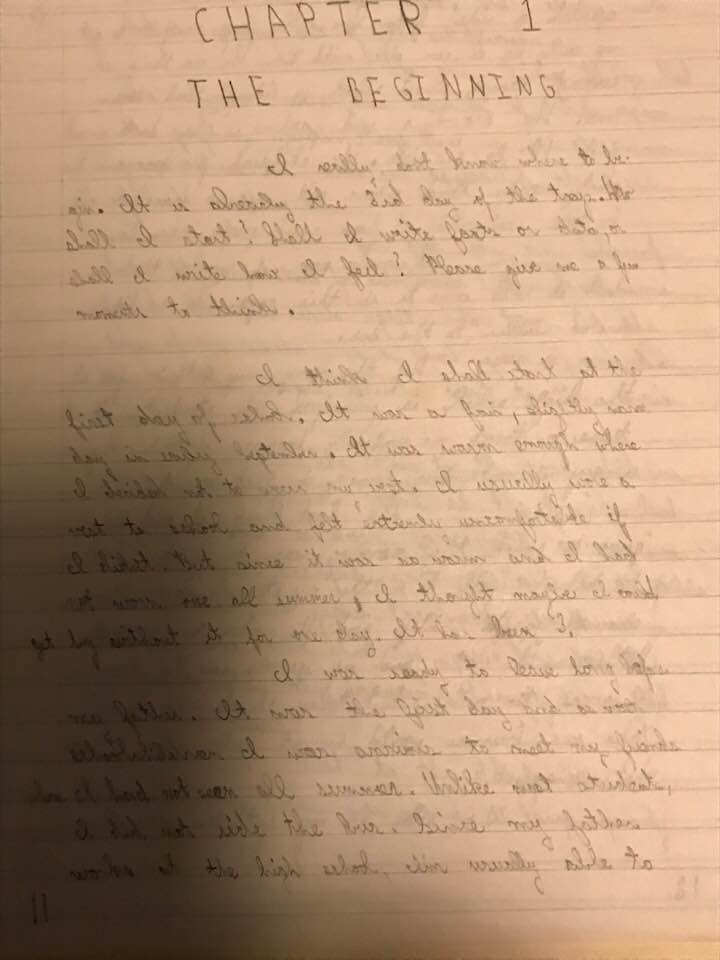 CHAPTER 1
THE BEGINNING
I really dont know where to be-
gin. It is already the 3rd day of the How
shall I start? Shall I write facts or data, or
shall I write how I feel? Please give me a few
moments to think.
I think I shall start at the
first day of school. It was a fair, slightly warm
day in early September. It was warm enough where
I decided not to wear my vest. I usually wore a
vest to school and felt extremely uncomfortable if
I didnt. But since it was so warm and I had
not worn one all summer, I thought maybe I could
get by without it for one day. It has been 3.
I was ready to leave long before
my father. It was the first day and as
I was anxious to meet my friends
who I had not seen all summer. Unlike most students,
I did not ride the bus. Since my father
works at the high school, usually able to
11